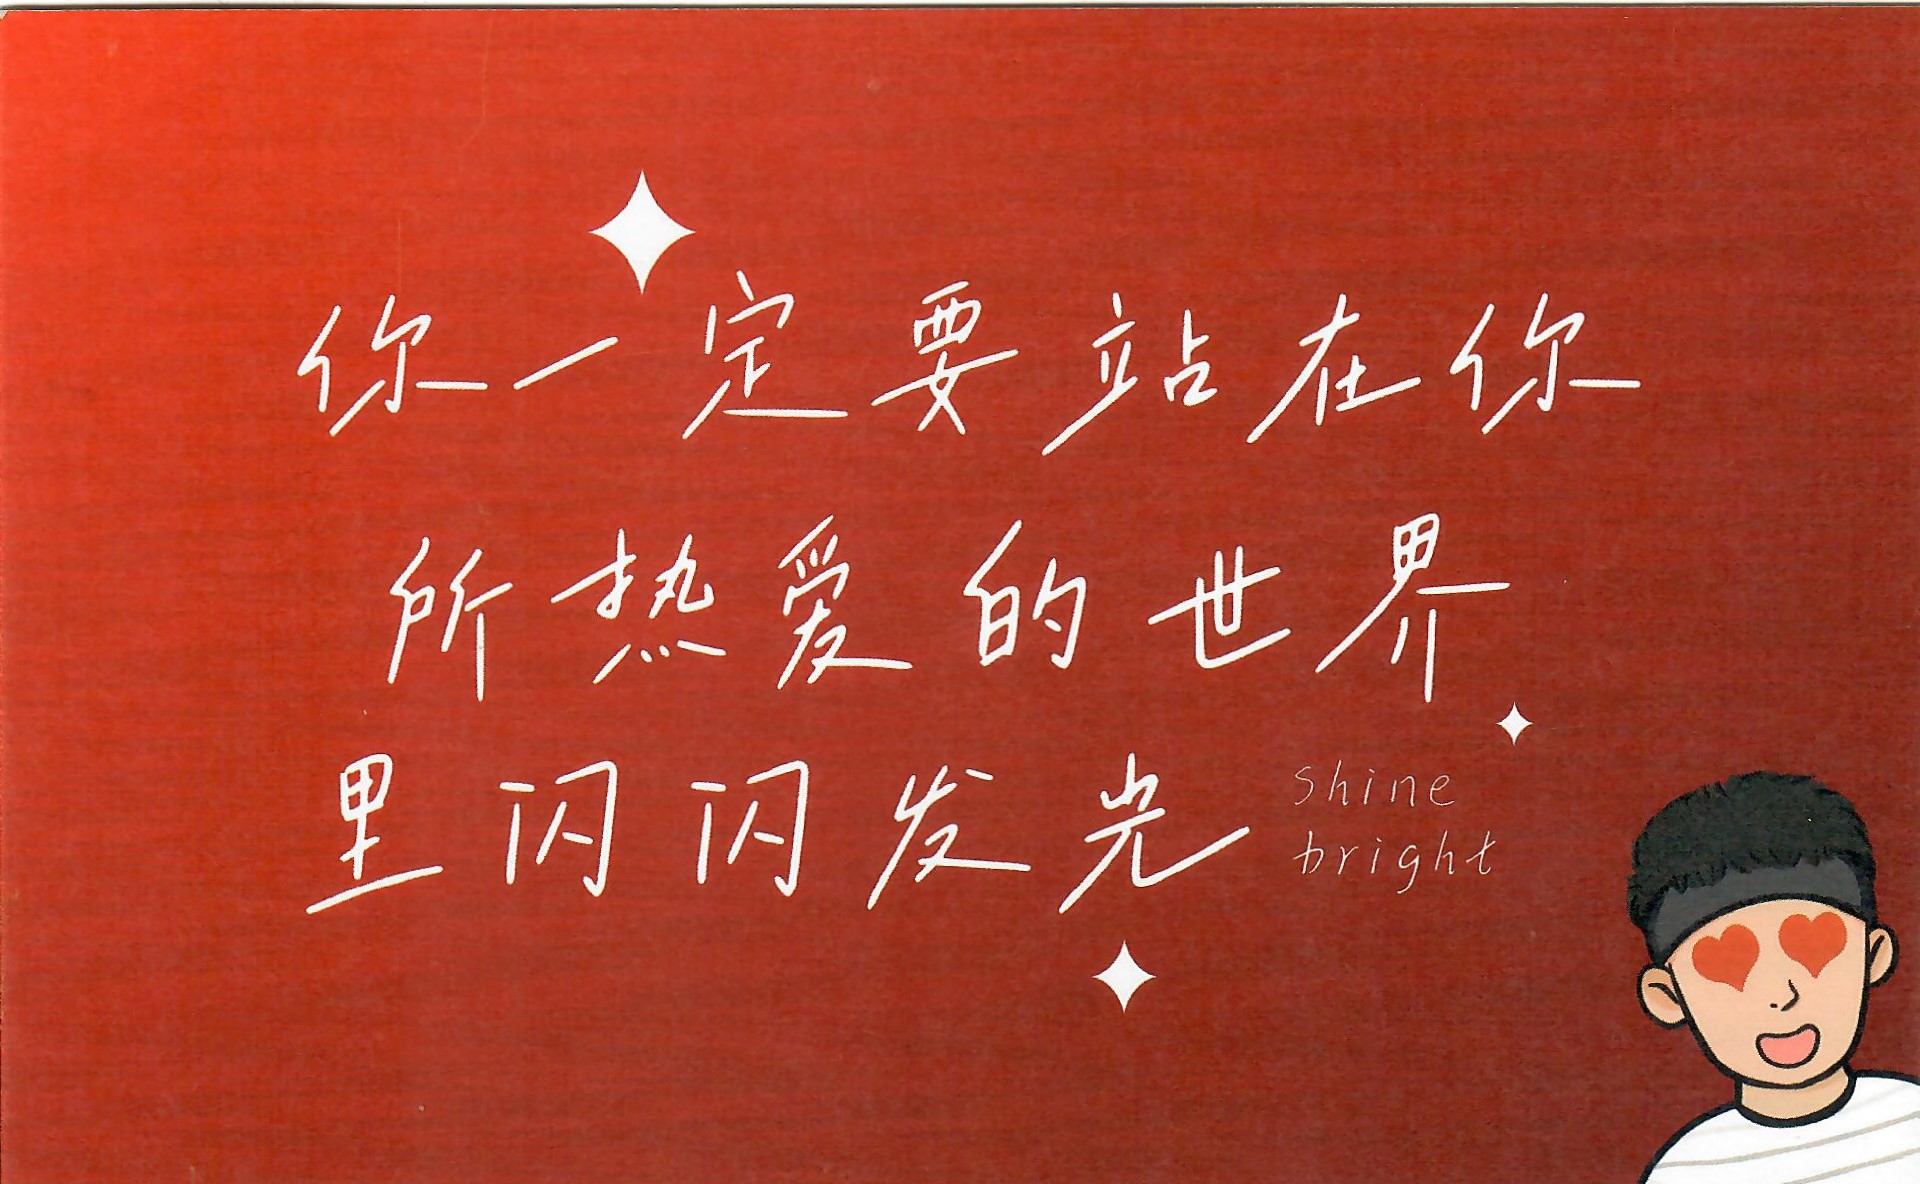 你一定要站在你
所热爱的世界
里闪闪发光
shine
bright